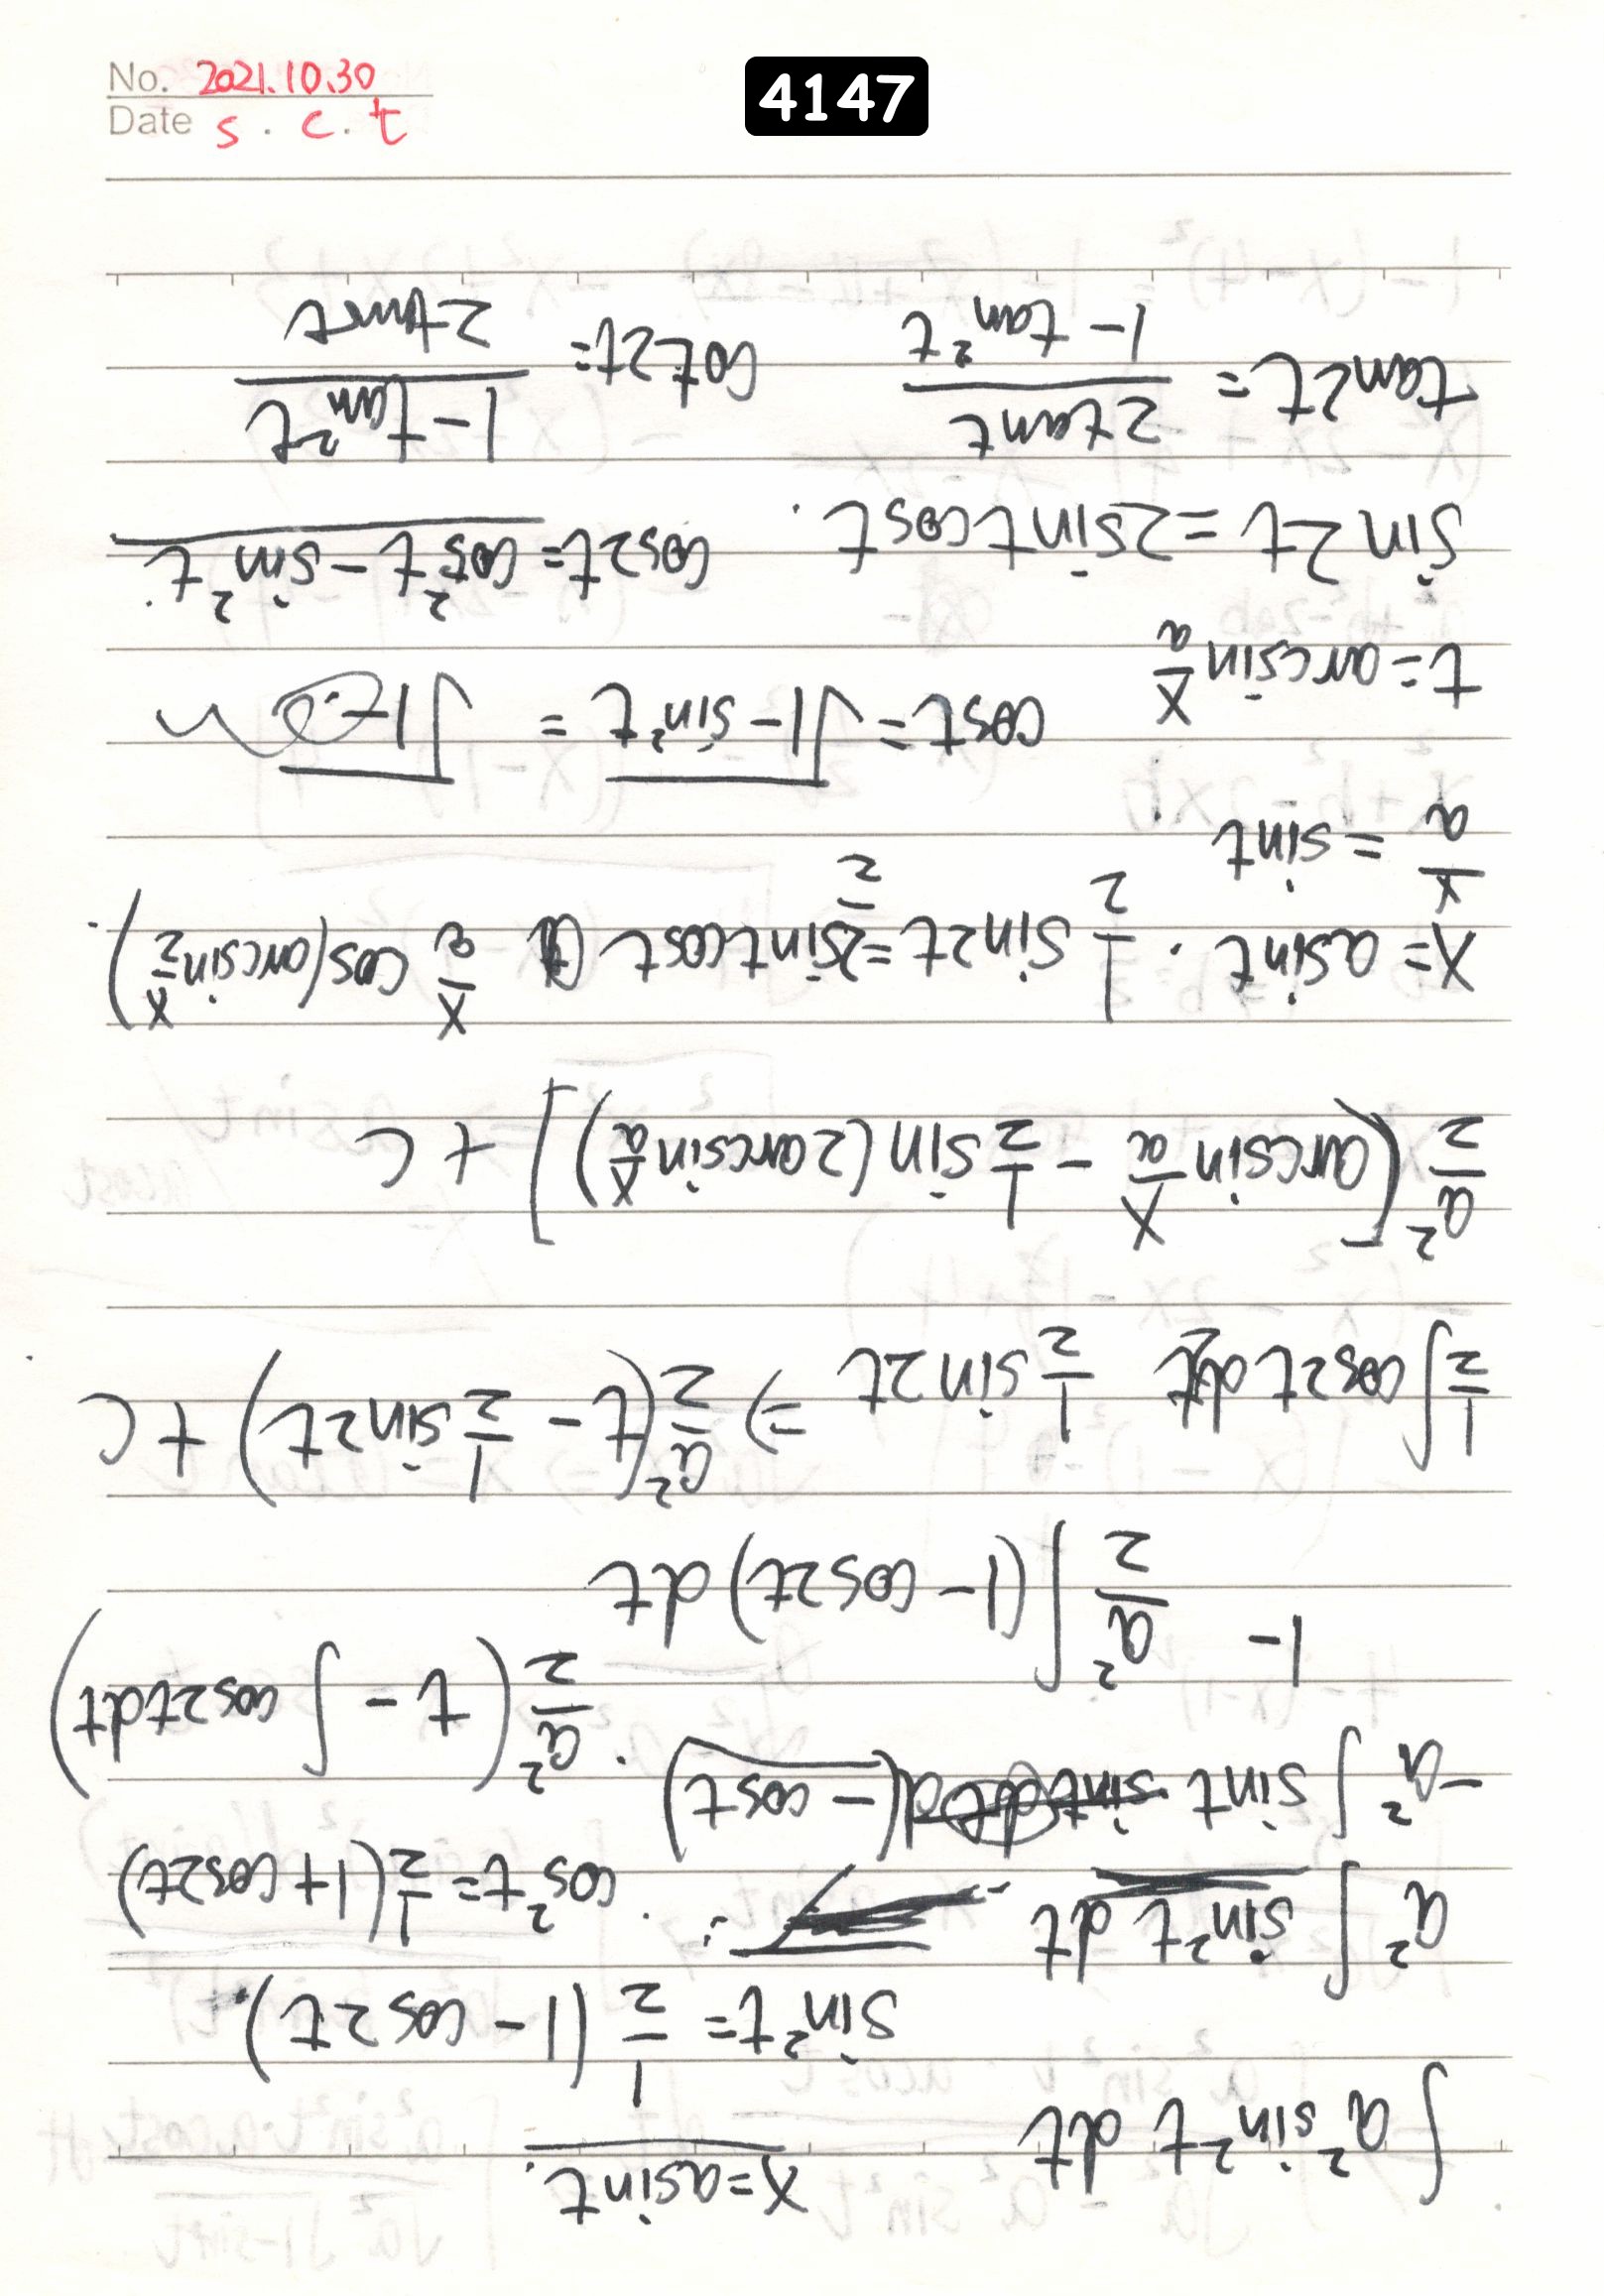 No. 2021.10.30
Date s . c . t
4147
∫ a² sin² t dt    x = a sin t.
sin² t = 1/2 (1 - cos 2t).
a² ∫ sin² t dt    cos² t = 1/2 (1 + cos 2t)
-a² ∫ sin t d(-cos t). a²/2 (t - ∫ cos 2t dt)
1- a²/2 ∫ (1 - cos 2t) dt
1/2 ∫ cos 2t d2t  1/2 sin 2t ⇒ a²/2 (t - 1/2 sin 2t) + C
a²/2 [arcsin x/a - 1/2 sin (2 arcsin x/a)] + C
x = a sin t. 1/2 sin 2t = 2 sin t cos t/2  x/a cos (arcsin x/2).
x/a = sin t
t = arcsin x/a   cos t = √(1 - sin² t) =
sin 2t = 2 sin t cos t.  cos 2t = cos² t - sin² t.
tan 2t = 2 tan t / (1 - tan² t)   cot 2t = (1 - tan² t) / 2 tan t